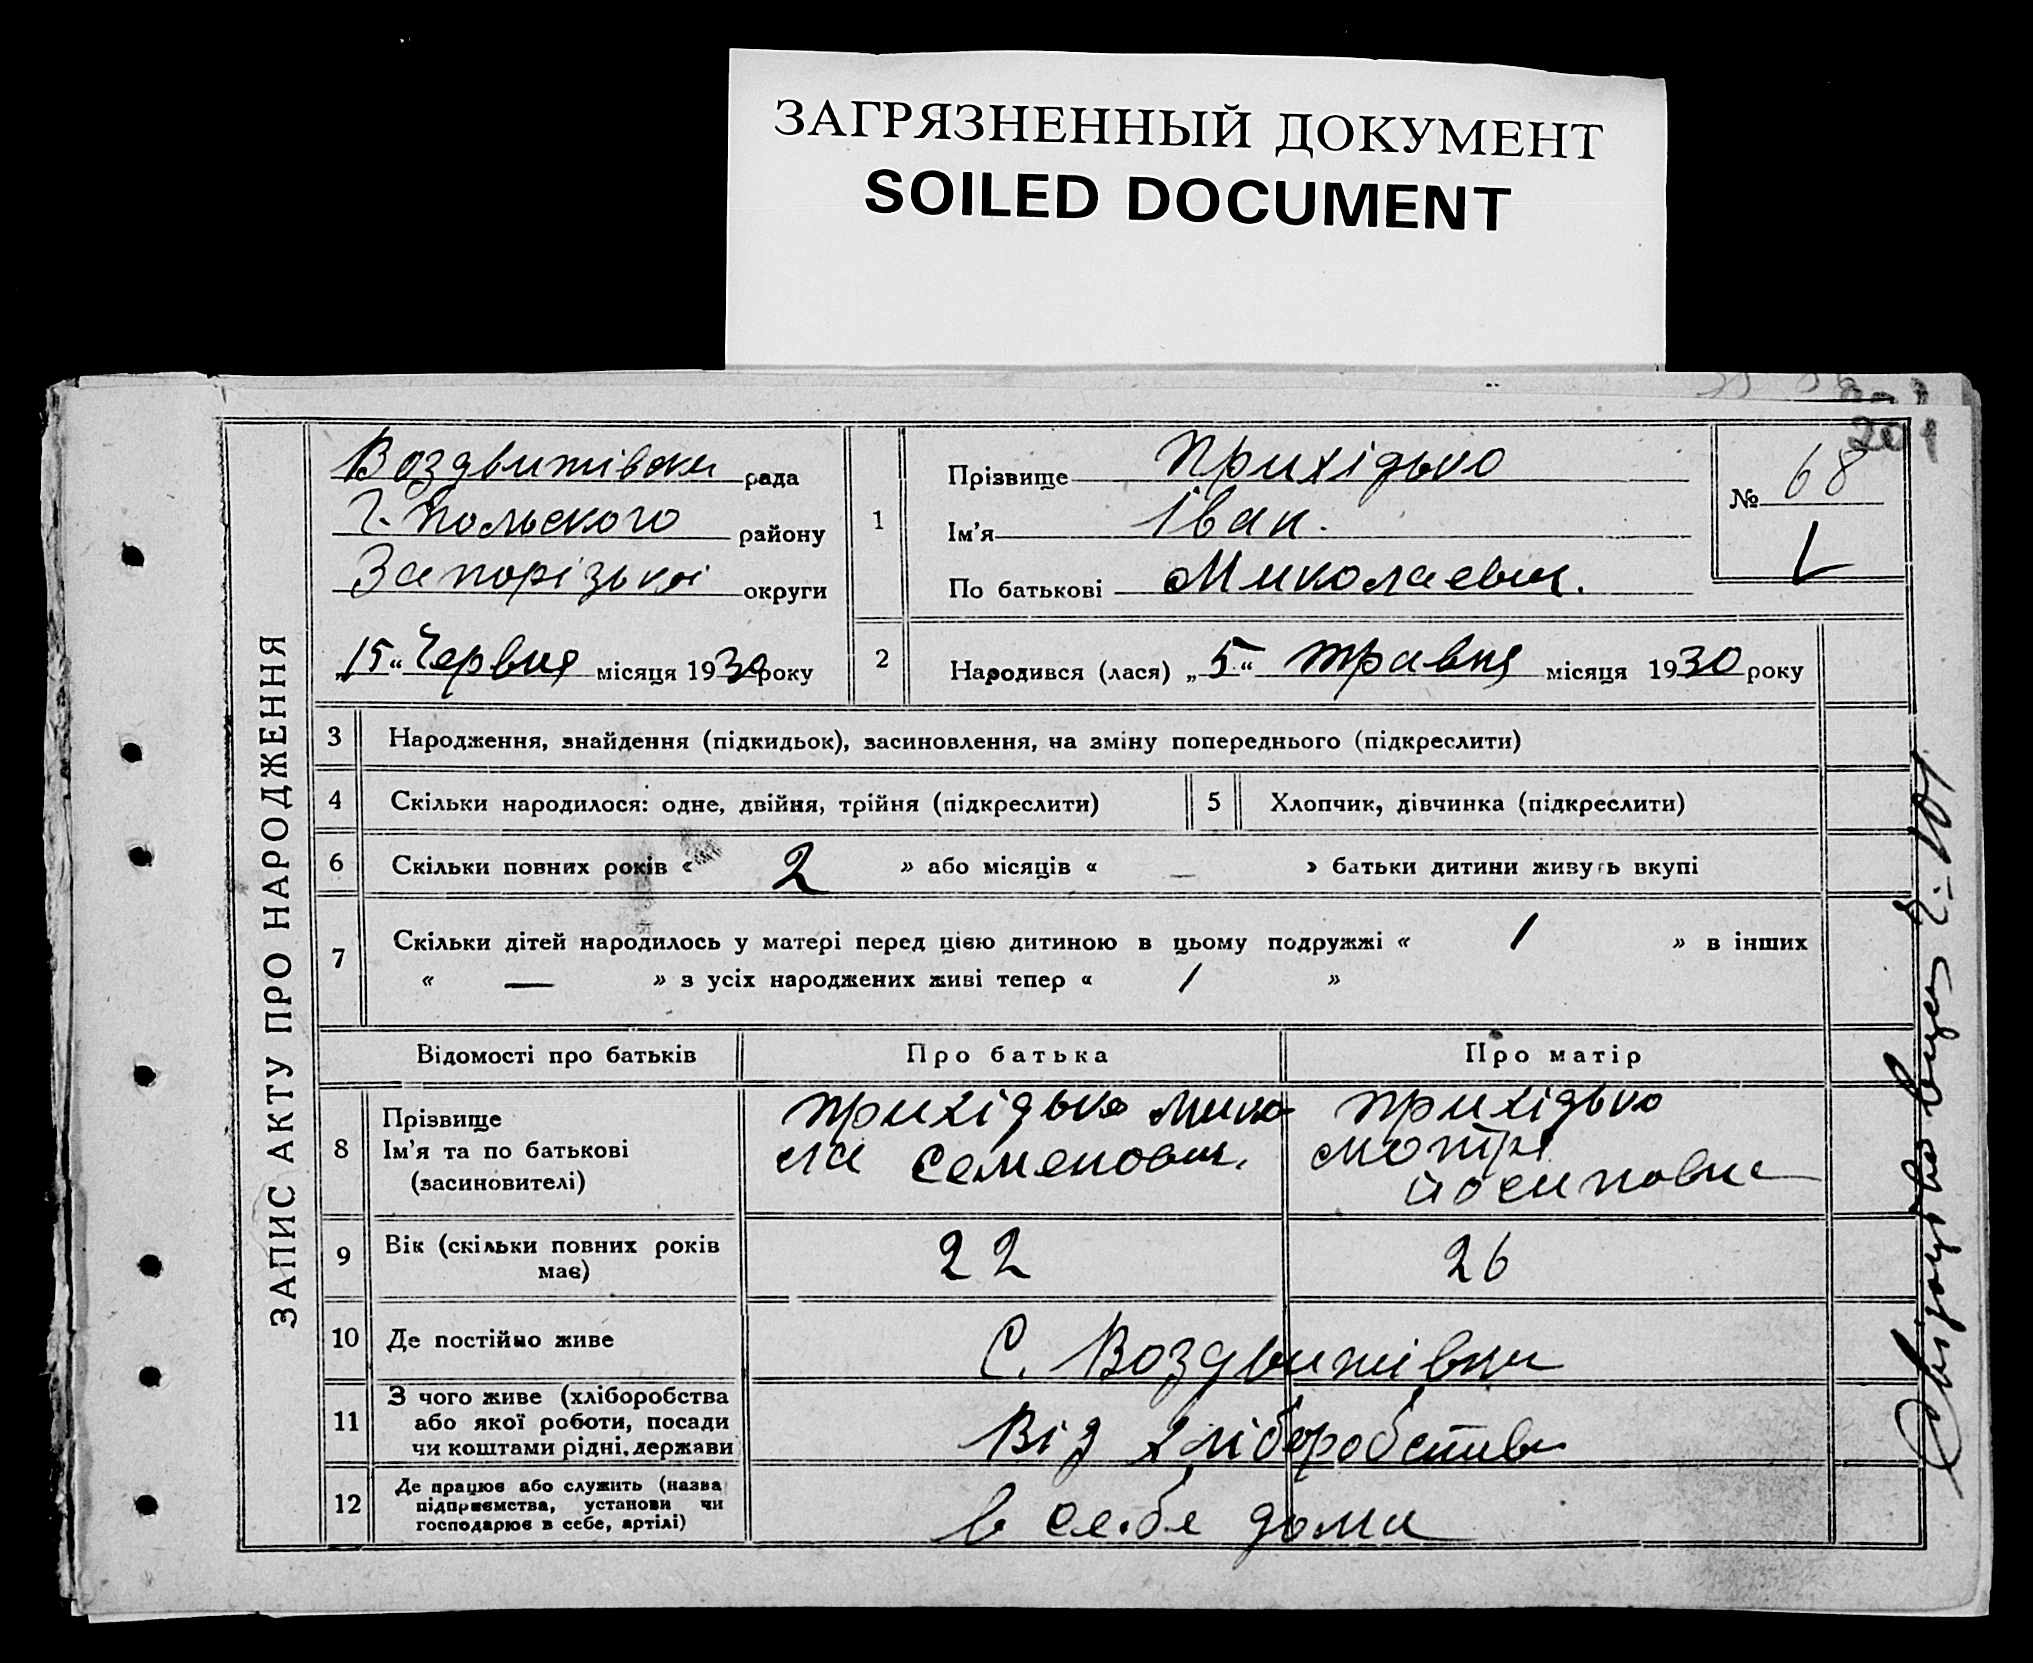 ЗАГРЯЗНЕННЫЙ ДОКУМЕНТ
SOILED DOCUMENT
201
ЗАПИС АКТУ ПРО НАРОДЖЕННЯ
Воздвижівська рада
Г. Польского району
Запорізької округи
„15“ Червня місяця 1930 року
1
Прізвище Прихідько
Ім'я Іван.
По батькові Миколаевич.
№ 68
2 Народився (лася) „5“ травня місяця 1930 року
3 Народження, знайдення (підкидьок), засиновлення, на зміну попереднього (підкреслити)
4 Скільки народилося: одне, двійня, трійня (підкреслити) 5 Хлопчик, дівчинка (підкреслити)
6 Скільки повних років « 2 » або місяців « — » батьки дитини живуть вкупі
7 Скільки дітей народилось у матері перед цією дитиною в цьому подружжі « 1 » в інших
« — » з усіх народжених живі тепер « 1 »
Відомості про батьків Про батька Про матір
8 Прізвище
Ім'я та по батькові
(засиновителі)
Прихідько Мико
ла Семенович.
Прихідько
Мотря
Йосиповна
9 Вік (скільки повних років
має)
22 26
10 Де постійно живе С. Воздвижівка
11 З чого живе (хліборобства
або якої роботи, посади
чи коштами рідні, держави
Від хліборобства
12 Де працює або служить (назва
підприємства, установи чи
господарює в себе, артілі)
в себе дома